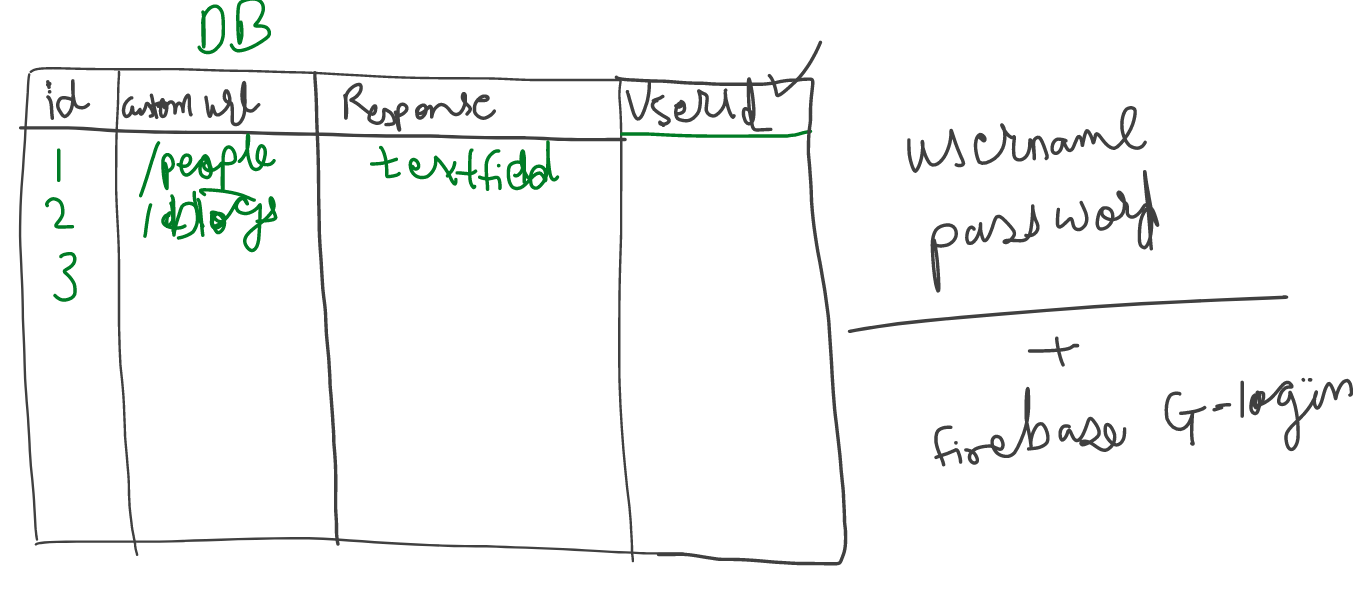 DB
id custom url Response UserId
1 /people textfield
2 /blogs
3
username
password
+
firebase G-login